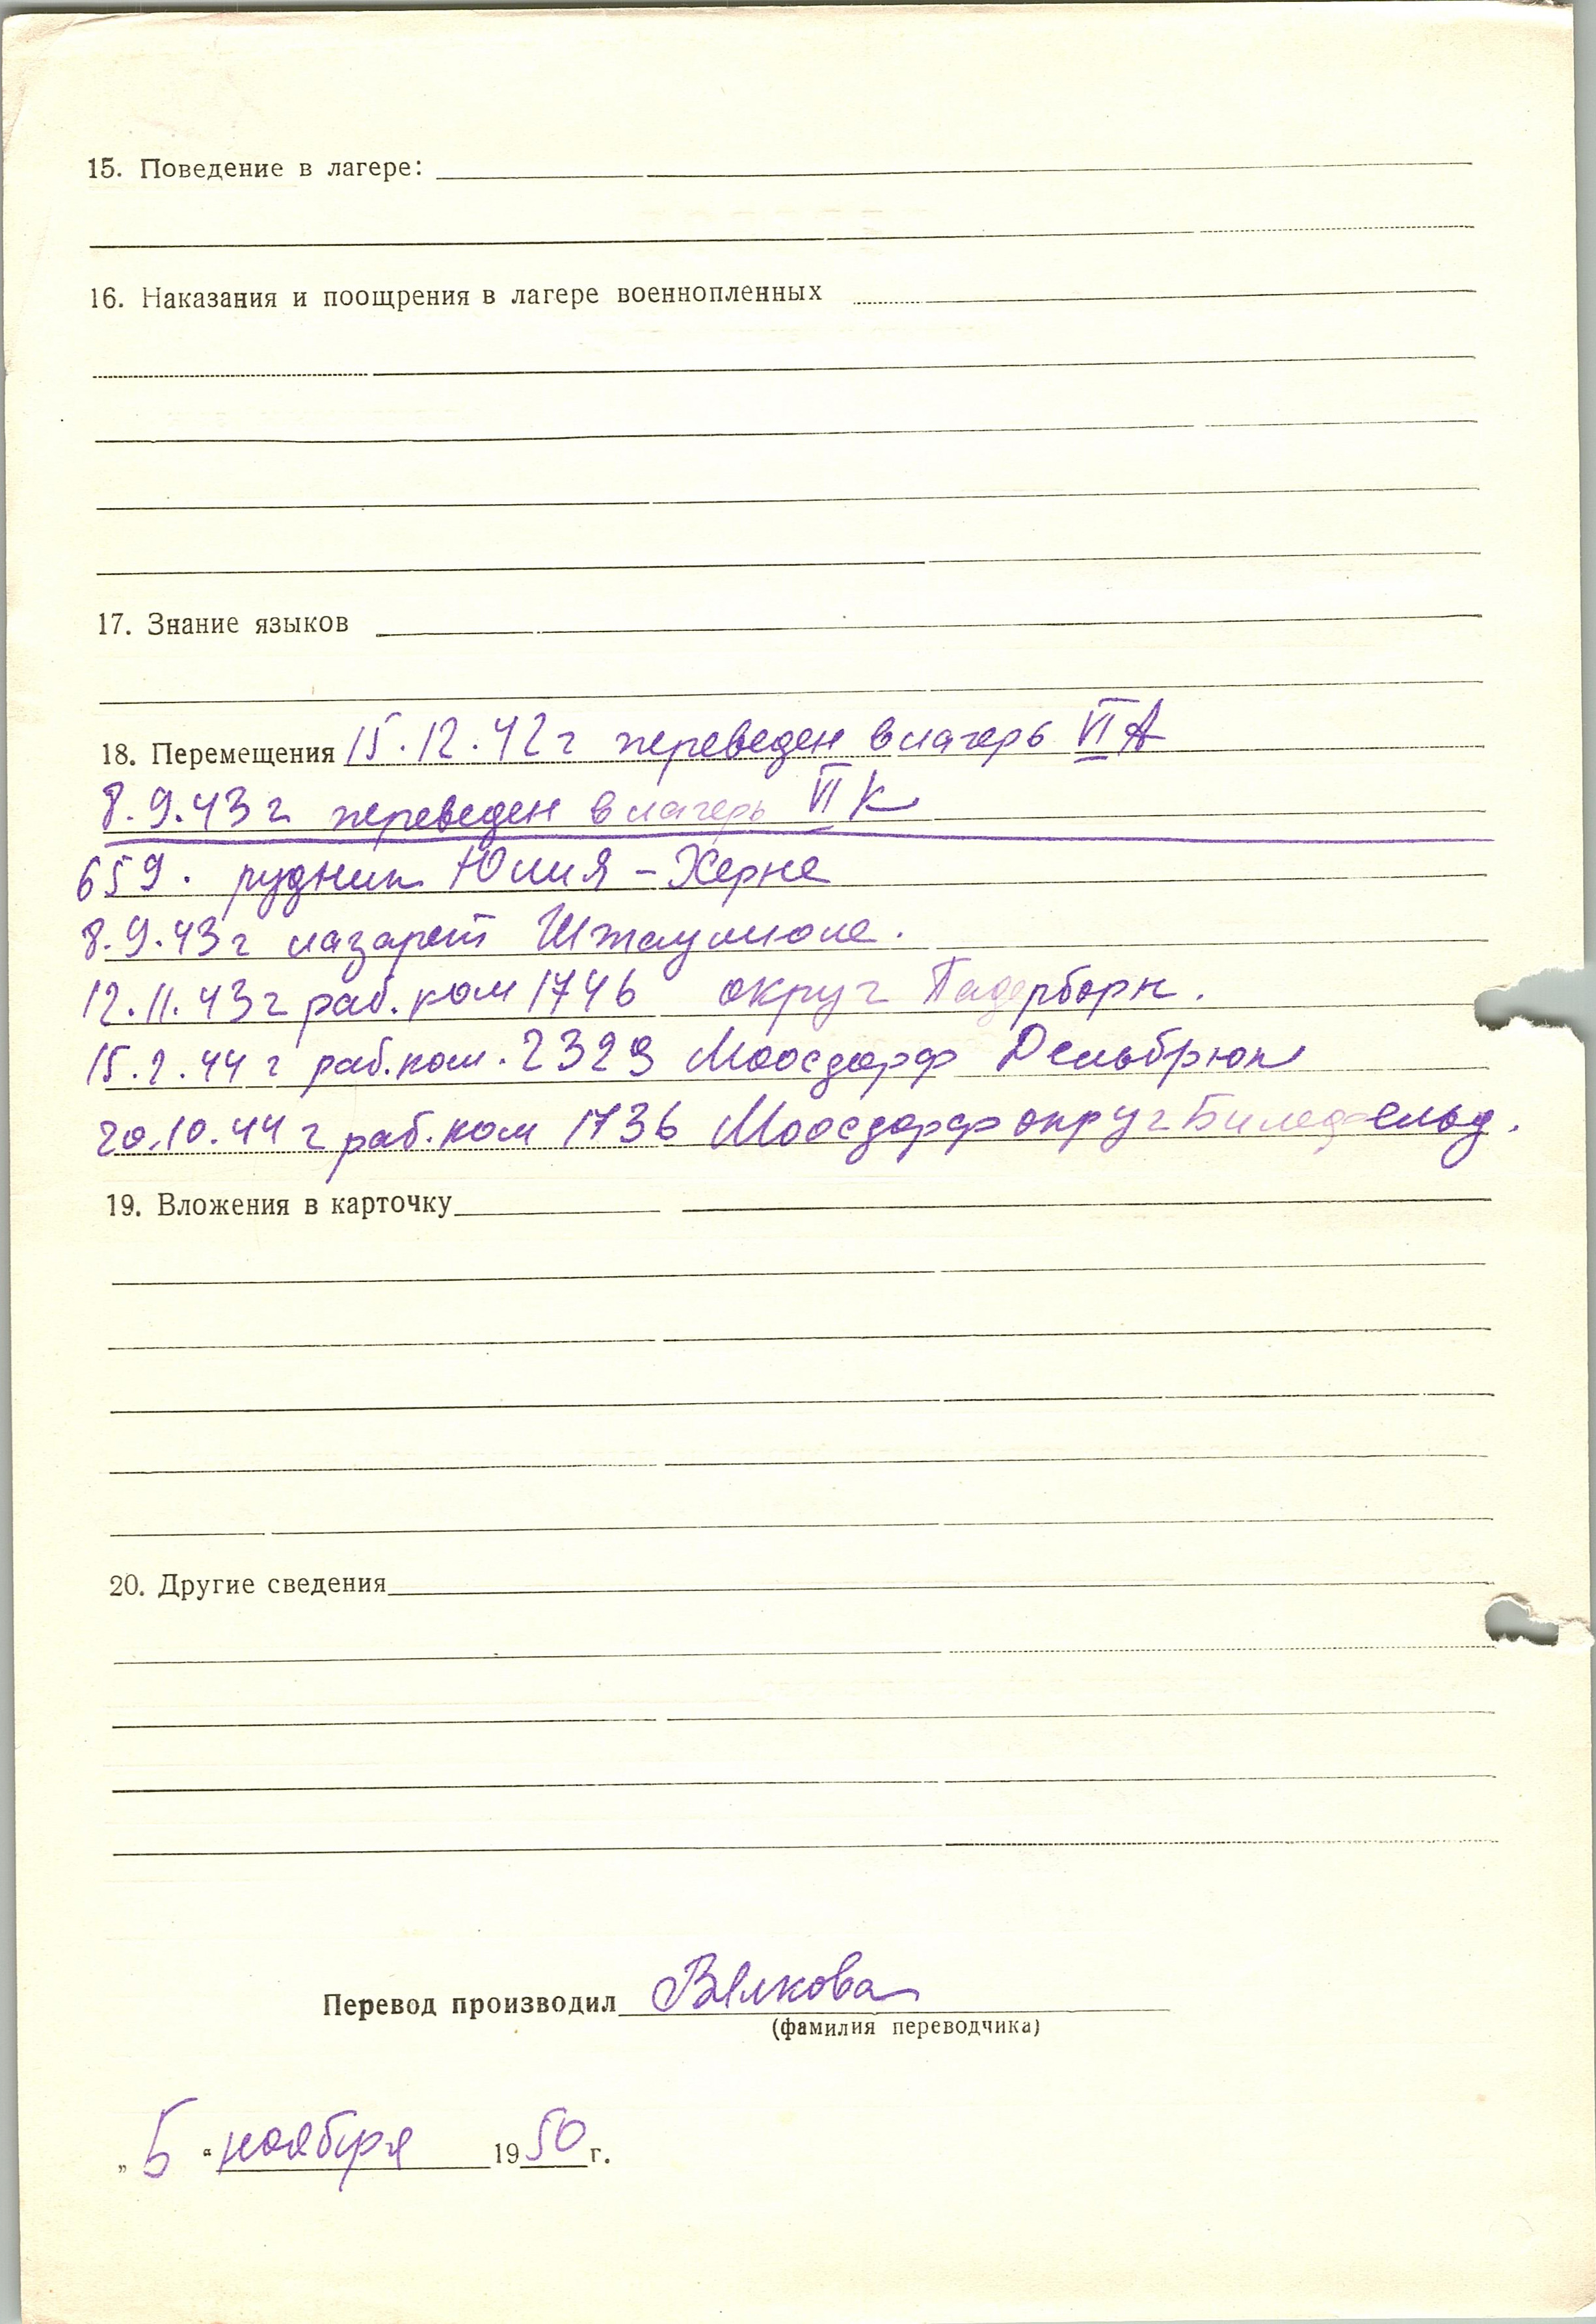 15. Поведение в лагере:
16. Наказания и поощрения в лагере военнопленных
17. Знание языков
18. Перемещения 15.12.42 г переведен в лагерь VI А
8.9.43 г переведен в лагерь VI К
659. рудник Юлия – Херне
8.9.43 г лазарет Штаумюле.
12.11.43 г раб. ком 1746 округ Падерборн.
15.2.44 г раб. ком. 2329 Моосдорф Дельбрюк
20.10.44 г раб. ком 1736 Моосдорф округ Биледфельд.
19. Вложения в карточку
20. Другие сведения
Перевод производил
(фамилия переводчика)
„5“ ноября 1950 г.